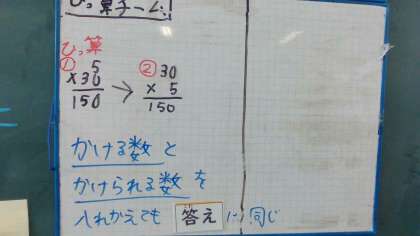 ひっ算チーム!
ひっ算
① 5
×30
150
→
② 30
× 5
150
かける数と
かけられる数を
入れかえても 答え は同じ